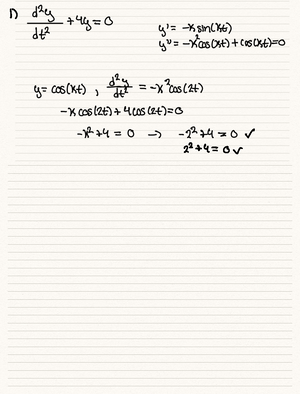 1) d²y/dt² + 4y = 0
y' = -k sin(kt)
y'' = -k² cos(kt) + cos(kt) = 0
y = cos(kt) , d²y/dt² = -k² cos(2t)
-k cos(2t) + 4 cos(2t) = 0
-k² + 4 = 0 → -2² + 4 = 0 ✓
2² + 4 = 0 ✓